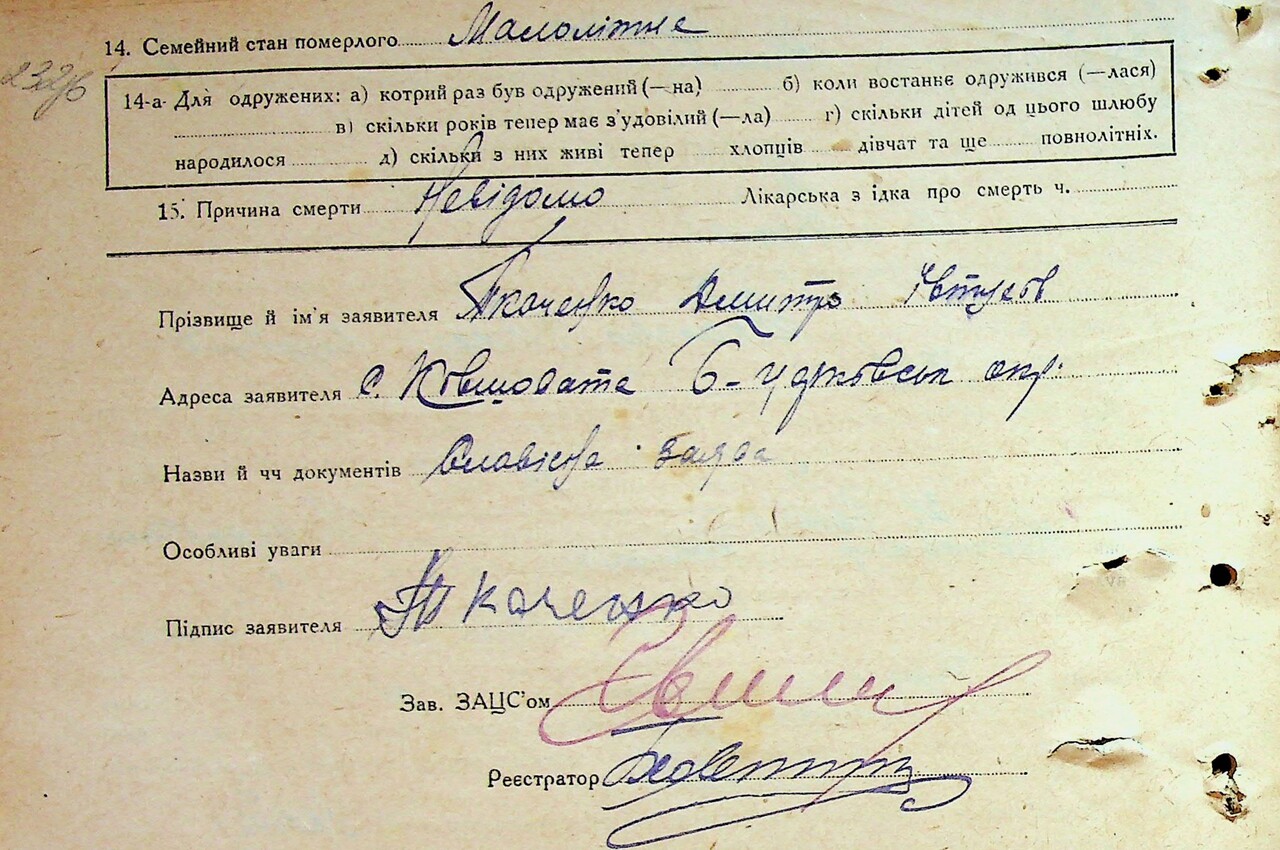 14. Семейний стан померлого Малолітнє
14-а- Для одружених: а) котрий раз був одружений (—на) б) коли востаннє одружився (—лася)
в) скільки років тепер має з'удовілий (—ла) г) скільки дітей од цього шлюбу
народилося д) скільки з них живі тепер хлопців дівчат та ще повнолітніх.
15. Причина смерти Невідомо Лікарська з ідка про смерть ч.
Прізвище й ім'я заявителя Ткаченко Дмитро
Адреса заявителя с. окр.
Назви й чч документів заява
Особливі уваги
Підпис заявителя Ткаченко
Зав. ЗАЦС'ом
Реєстратор